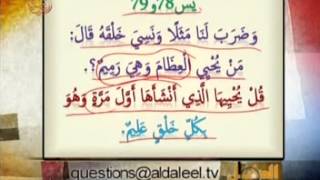 يس78و79
وَضَرَبَ لَنَا مَثَلًا وَنَسِيَ خَلْقَهُ قَالَ:
مَنْ يُحْيِي الْعِظَامَ وَهِيَ رَمِيمٌ؟.
قُلْ يُحْيِيهَا الَّذِي أَنْشَأَهَا أَوَّلَ مَرَّةٍ وَهُوَ
بِكُلِّ خَلْقٍ عَلِيمٌ.
questions@aldaleel.tv